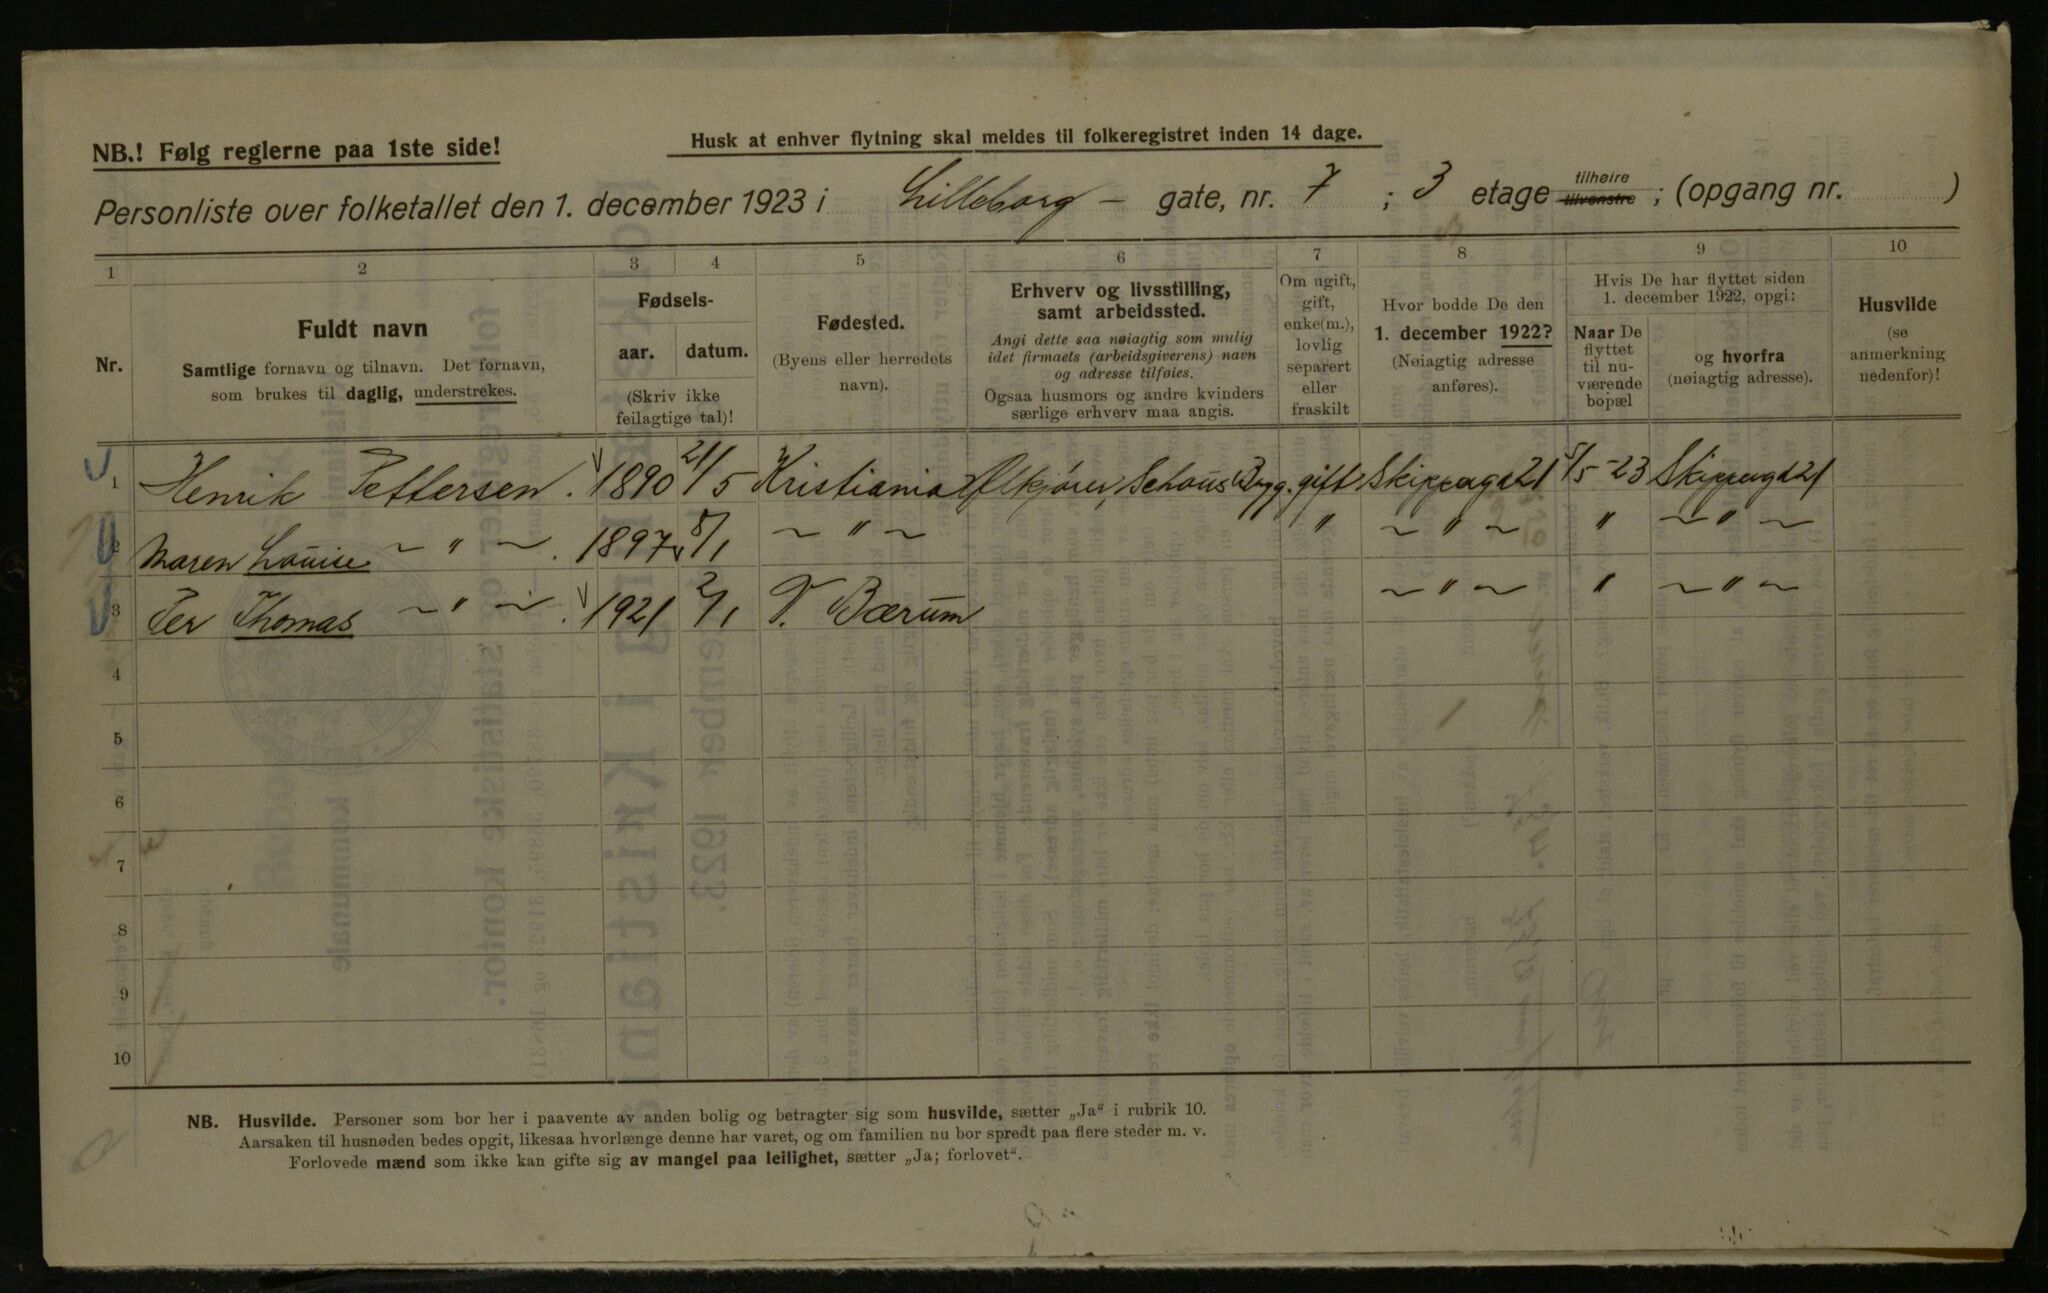 NB.! Følg reglerne paa 1ste side!
Husk at enhver flytning skal meldes til folkeregistret inden 14 dage.
Personliste over folketallet den 1. december 1923 i Lilleborg – gate, nr. 7 ; 3 etage tilhøire tilvenstre ; (opgang nr. )
1 2 3 4 5 6 7 8 9 10
Nr.
Fuldt navn
Samtlige fornavn og tilnavn. Det fornavn,
som brukes til daglig, understrekes.
Fødsels-
aar. datum.
(Skriv ikke
feilagtige tal)!
Fødested.
(Byens eller herredets
navn).
Erhverv og livsstilling,
samt arbeidssted.
Angi dette saa nøiagtig som mulig
idet firmaets (arbeidsgiverens) navn
og adresse tilføies.
Ogsaa husmors og andre kvinders
særlige erhverv maa angis.
Om ugift,
gift,
enke(m.),
lovlig
separert
eller
fraskilt
Hvor bodde De den
1. december 1922?
(Nøiagtig adresse
anføres).
Hvis De har flyttet siden
1. december 1922, opgi:
Naar De
flyttet
til nu-
værende
bopæl
og hvorfra
(nøiagtig adresse).
Husvilde
(se
anmerkning
nedenfor)!
1 Henrik Pettersen. 1890 21/5 Kristiania Ølkjører, Schous Bryg. gift Skipperg. 21 5/5 -23 Skipperg. 21
2 Maren Louise ~ " ~. 1897 8/1 ~ " ~ " ~ " ~ " ~ " ~
3 Per Thomas ~ " ~. 1921 2/1 V. Bærum ~ " ~ " ~ " ~
4
5
6
7
8
9
10
NB. Husvilde. Personer som bor her i paavente av anden bolig og betragter sig som husvilde, sætter „Ja“ i rubrik 10.
Aarsaken til husnøden bedes opgit, likesaa hvorlænge denne har varet, og om familien nu bor spredt paa flere steder m. v.
Forlovede mænd som ikke kan gifte sig av mangel paa leilighet, sætter „Ja; forlovet“.